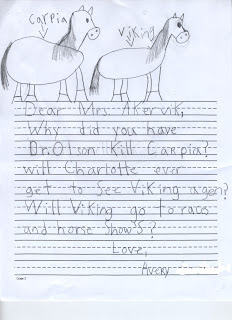 Carpia
Viking
Dear Mrs. Akervik,
Why did you have
Dr. Olson Kill Carpia?
will Charlotte ever
get to see Viking agen?
Will Viking go to races
and horse shows?
Love,
Avery